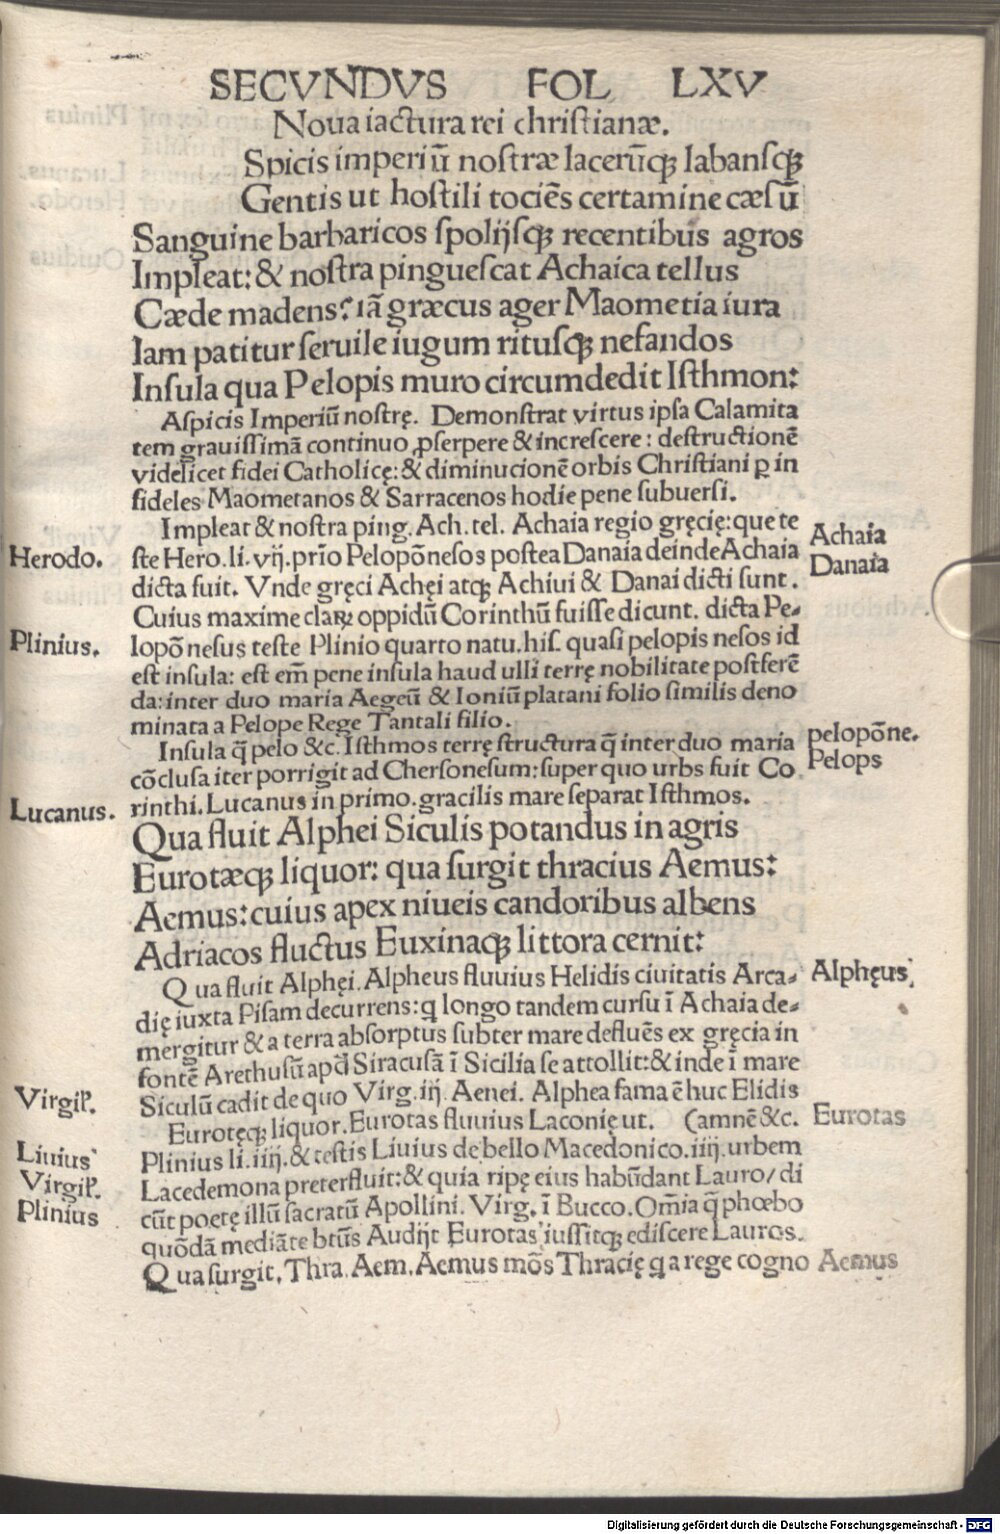 SECVNDVS FOL LXV
Noua iactura rei christianæ.
Spicis imperiū nostræ lacerūq; labansq;
Gentis ut hostili tociēs certamine cæsū
Sanguine barbaricos spolijsq; recentibus agros
Impleat: & nostra pinguescat Achaica tellus
Cæde madens? iā græcus ager Maometia iura
Iam patitur seruile iugum ritusq; nefandos
Insula qua Pelopis muro circumdedit Isthmon:
Aspicis Imperiū nostrę. Demonstrat virtus ipsa Calamita
tem grauissimā continuo ꝓserpere & increscere: destructionē
videlicet fidei Catholicę: & diminucionē orbis Christiani ꝑ in
fideles Maometanos & Sarracenos hodie pene subuersi.
Impleat & nostra ping. Ach. tel. Achaia regio gręcię: que te
ste Hero. li. vij. prīo Pelopōnesos postea Danaia deinde Achaia
dicta fuit. Vnde gręci Achęi atq; Achiui & Danai dicti sunt.
Cuius maxime claꝝ oppidū Corinthū fuisse dicunt. dicta Pe⸗
lopōnesus teste Plinio quarto natu. his. quasi pelopis nesos id
est insula: est em̄ pene insula haud ulli terrę nobilitate postferē
da: inter duo maria Aegeū & Ioniū platani folio similis deno
minata a Pelope Rege Tantali filio.
Insula q̄ pelo &c. Isthmos terrę structura q̄ inter duo maria
cōclusa iter porrigit ad Chersonesum: super quo urbs fuit Co
rinthi. Lucanus in primo. gracilis mare separat Isthmos.
Qua fluit Alphei Siculis potandus in agris
Eurotæq; liquor: qua surgit thracius Aemus:
Aemus: cuius apex niueis candoribus albens
Adriacos fluctus Euxinaq; littora cernit:
Qua fluit Alphęi. Alpheus fluuius Helidis ciuitatis Arca⸗
dię iuxta Pisam decurrens: q longo tandem cursu ī Achaia de⸗
mergitur & a terra absorptus subter mare defluēs ex gręcia in
fontē Arethusū apđ Siracusā ī Sicilia se attollit: & inde ī mare
Siculū cadit de quo Virg. iij. Aenei. Alphea fama ē huc Elidis
Eurotęq; liquor. Eurotas fluuius Laconię ut. (amnē &c.
Plinius li. iiij. & testis Liuius de bello Macedonico. iiij. urbem
Lacedemona preterfluit: & quia ripę eius habūdant Lauro/ di
cūt poetę illū sacratū Apollini. Virg. ī Bucco. Om̄ia q̄ phœbo
quōdā mediāte btūs Audijt Eurotas iussitq; ediscere Lauros.
Qua surgit. Thra. Aem. Aemus mōs Thracię q a rege cogno
Herodo.
Plinius.
Lucanus.
Virgil'.
Liuius
Virgil'.
Plinius
Achaia
Danaia
pelopōne.
Pelops
Alphęus
Eurotas
Aemus
Digitalisierung gefördert durch die Deutsche Forschungsgemeinschaft - DFG